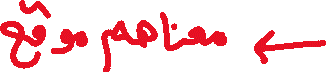 معناهم موقع ←